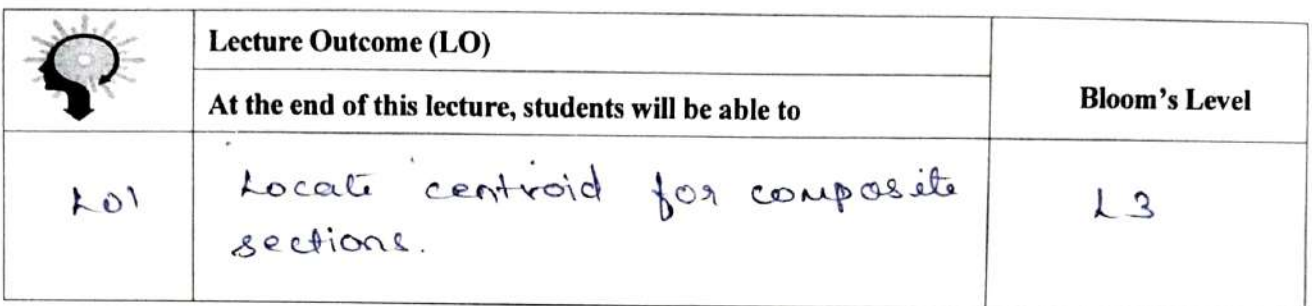 Lecture Outcome (LO)
At the end of this lecture, students will be able to
Bloom's Level
LO1
Locate centroid for composite
sections.
L3